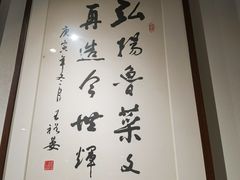 弘揚魯菜文
再造今世輝
庚寅年冬月 王裕晏